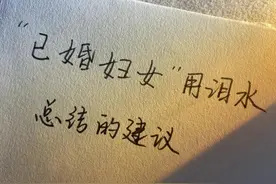 “已婚妇女”用泪水
总结的建议